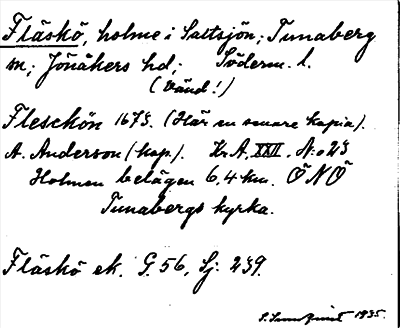 Fläskö, holme i Saltsjön; Tunaberg
sn; Jönåkers hd; Söderm. l.
(Vänd!)
Fleschön 1678. (Här en senare kopia).
A. Anderson (kap.). Kr.A. XXII. N:o 23
Holmen belägen 6,4 km. ÖNÖ
Tunabergs kyrka.
Fläskö ek. G. 56, Sj. 239.
1935.